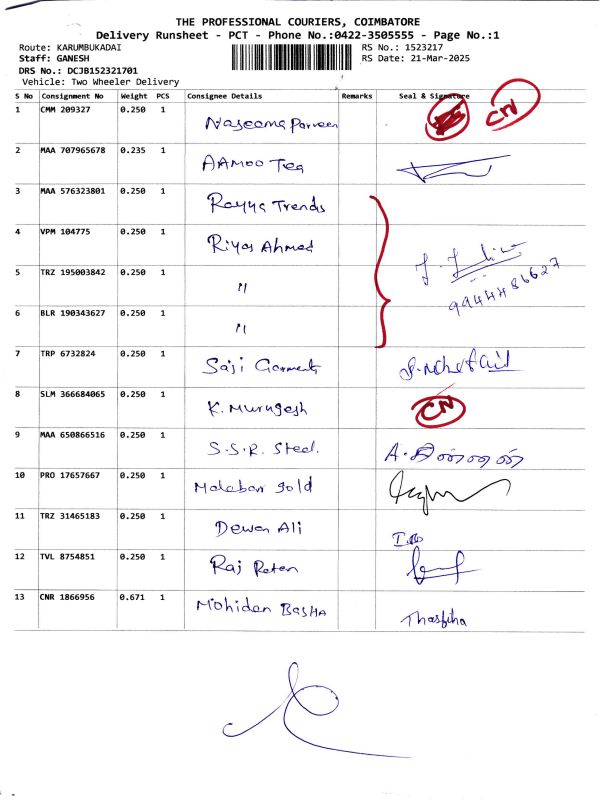 THE PROFESSIONAL COURIERS, COIMBATORE
Delivery Runsheet - PCT - Phone No.:0422-3505555 - Page No.:1
Route: KARUMBUKADAI RS No.: 1523217
Staff: GANESH RS Date: 21-Mar-2025
DRS No.: DCJB152321701
Vehicle: Two Wheeler Delivery
S No Consignment No Weight PCS Consignee Details Remarks Seal & Signature
1 CMM 209327 0.250 1 Naseema Parveen CN
2 MAA 707965678 0.235 1 AAMOO Tea
3 MAA 576323801 0.250 1 Rayya Trends
4 VPM 104775 0.250 1 Riyas Ahmed
5 TRZ 195003842 0.250 1 "
9944486627
6 BLR 190343627 0.250 1 "
7 TRP 6732824 0.250 1 Saji Garments
8 SLM 366684065 0.250 1 K. Murugesh CN
9 MAA 650866516 0.250 1 S.S.R. Steel.
10 PRO 17657667 0.250 1 Malabar Gold
11 TRZ 31465183 0.250 1 Dewan Ali
12 TVL 8754851 0.250 1 Raj Raten
13 CNR 1866956 0.671 1 Mohiden Basha Thasfiha